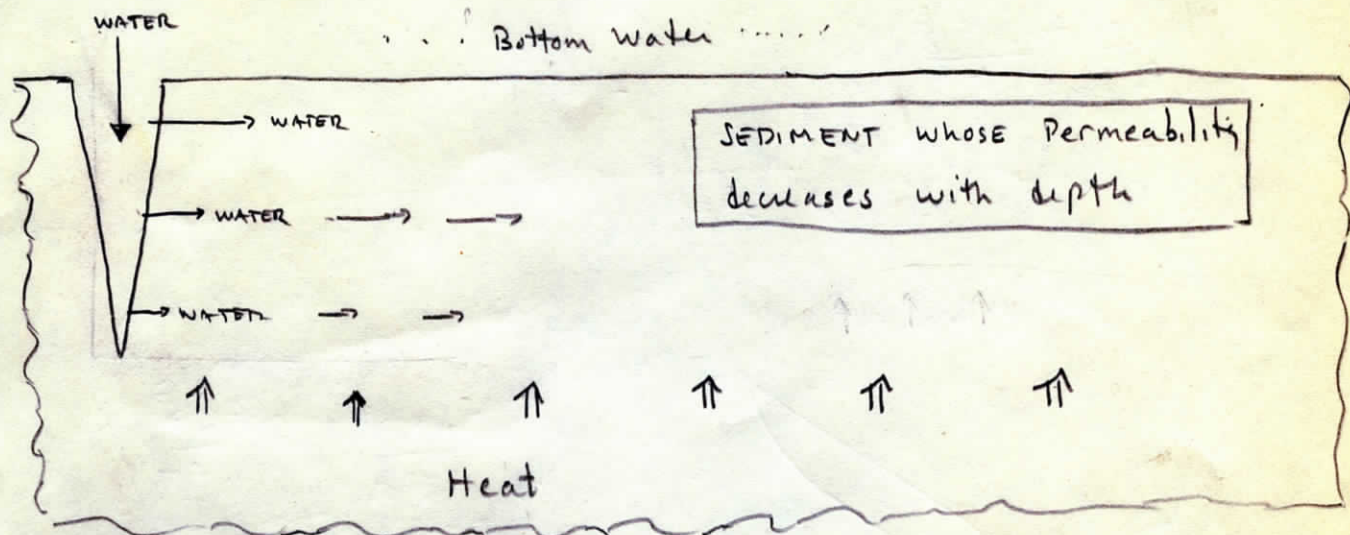 WATER
Bottom Water
WATER
SEDIMENT whose Permeability
decreases with depth
WATER
WATER
Heat